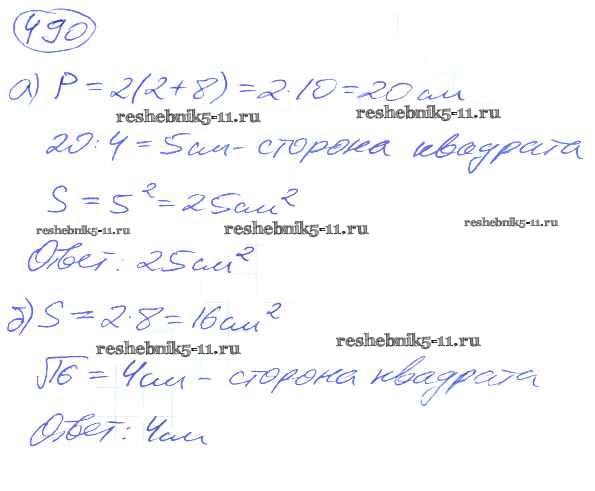 490
а) P = 2(2+8) = 2·10 = 20 см
reshebnik5-11.ru reshebnik5-11.ru
20:4 = 5см - сторона квадрата
S = 5² = 25см²
reshebnik5-11.ru reshebnik5-11.ru reshebnik5-11.ru
Ответ: 25см²
б) S = 2·8 = 16см²
reshebnik5-11.ru reshebnik5-11.ru
√16 = 4см - сторона квадрата
Ответ: 4см